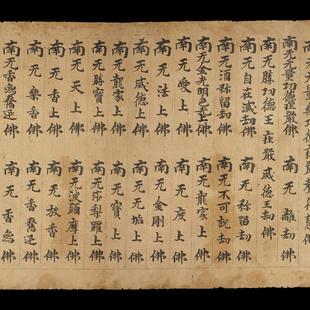 南无无量功德莊嚴佛 南无離劫佛
南无勝功德王莊嚴威德王劫佛
南无自在滅劫佛 南无弥留劫佛
南无須弥留劫佛 南无不可說劫佛
南无金光明色光上佛 南无龍家上佛
南无愛上佛 南无度上佛
南无法上佛 南无金剛上佛
南无威德上佛 南无无垢上佛
南无龍家上佛 南无寶上佛
南无勝寶上佛 南无莎梨羅上佛
南无天上佛 南无波頭摩上佛
南无香上佛 南无放香佛
南无樂香佛 南无香奮迅佛
南无香象奮迅佛 南无香象佛